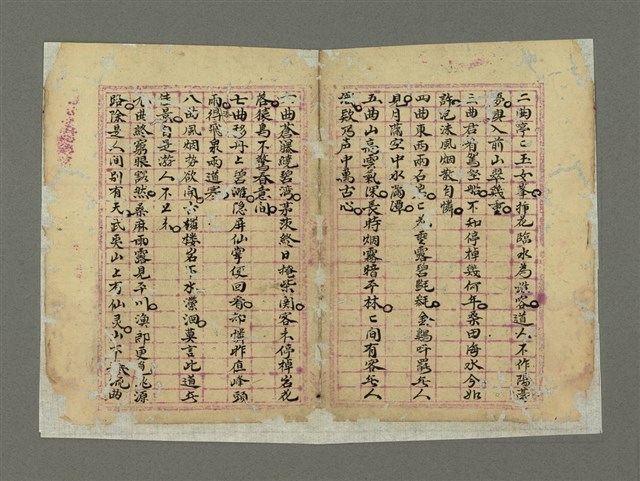 二曲亭〻玉女峯插花臨水為誰容道人不作陽臺
夢興入前山翠幾重
三曲君看駕壑船不知停棹幾何年桑田海水今如
許泡沫風烟敢自憐
四曲東西兩石岩〻花垂露碧㲯毿金鷄叫罷無人
見月滿空中水滿潭
五曲山高雲氣深長時烟霧暗平林〻間有客無人
識欸乃声中萬古心
六曲蒼屏繞碧湾茅茨終日掩柴関客來停棹岩花
落猿鳥不驚春意間
七曲移舟上碧灘隱屏仙掌便回看却憐昨夜峰頭
雨得飛泉兩道寒
八曲風烟勢欲開六樓岩下水瀠洄莫言此道無
佳景自是游人不上來
九曲終窮眼豁然桑麻雨露見平川漁郎更覓桃源
路除是人間別有天武夷山上有仙灵山下 流曲